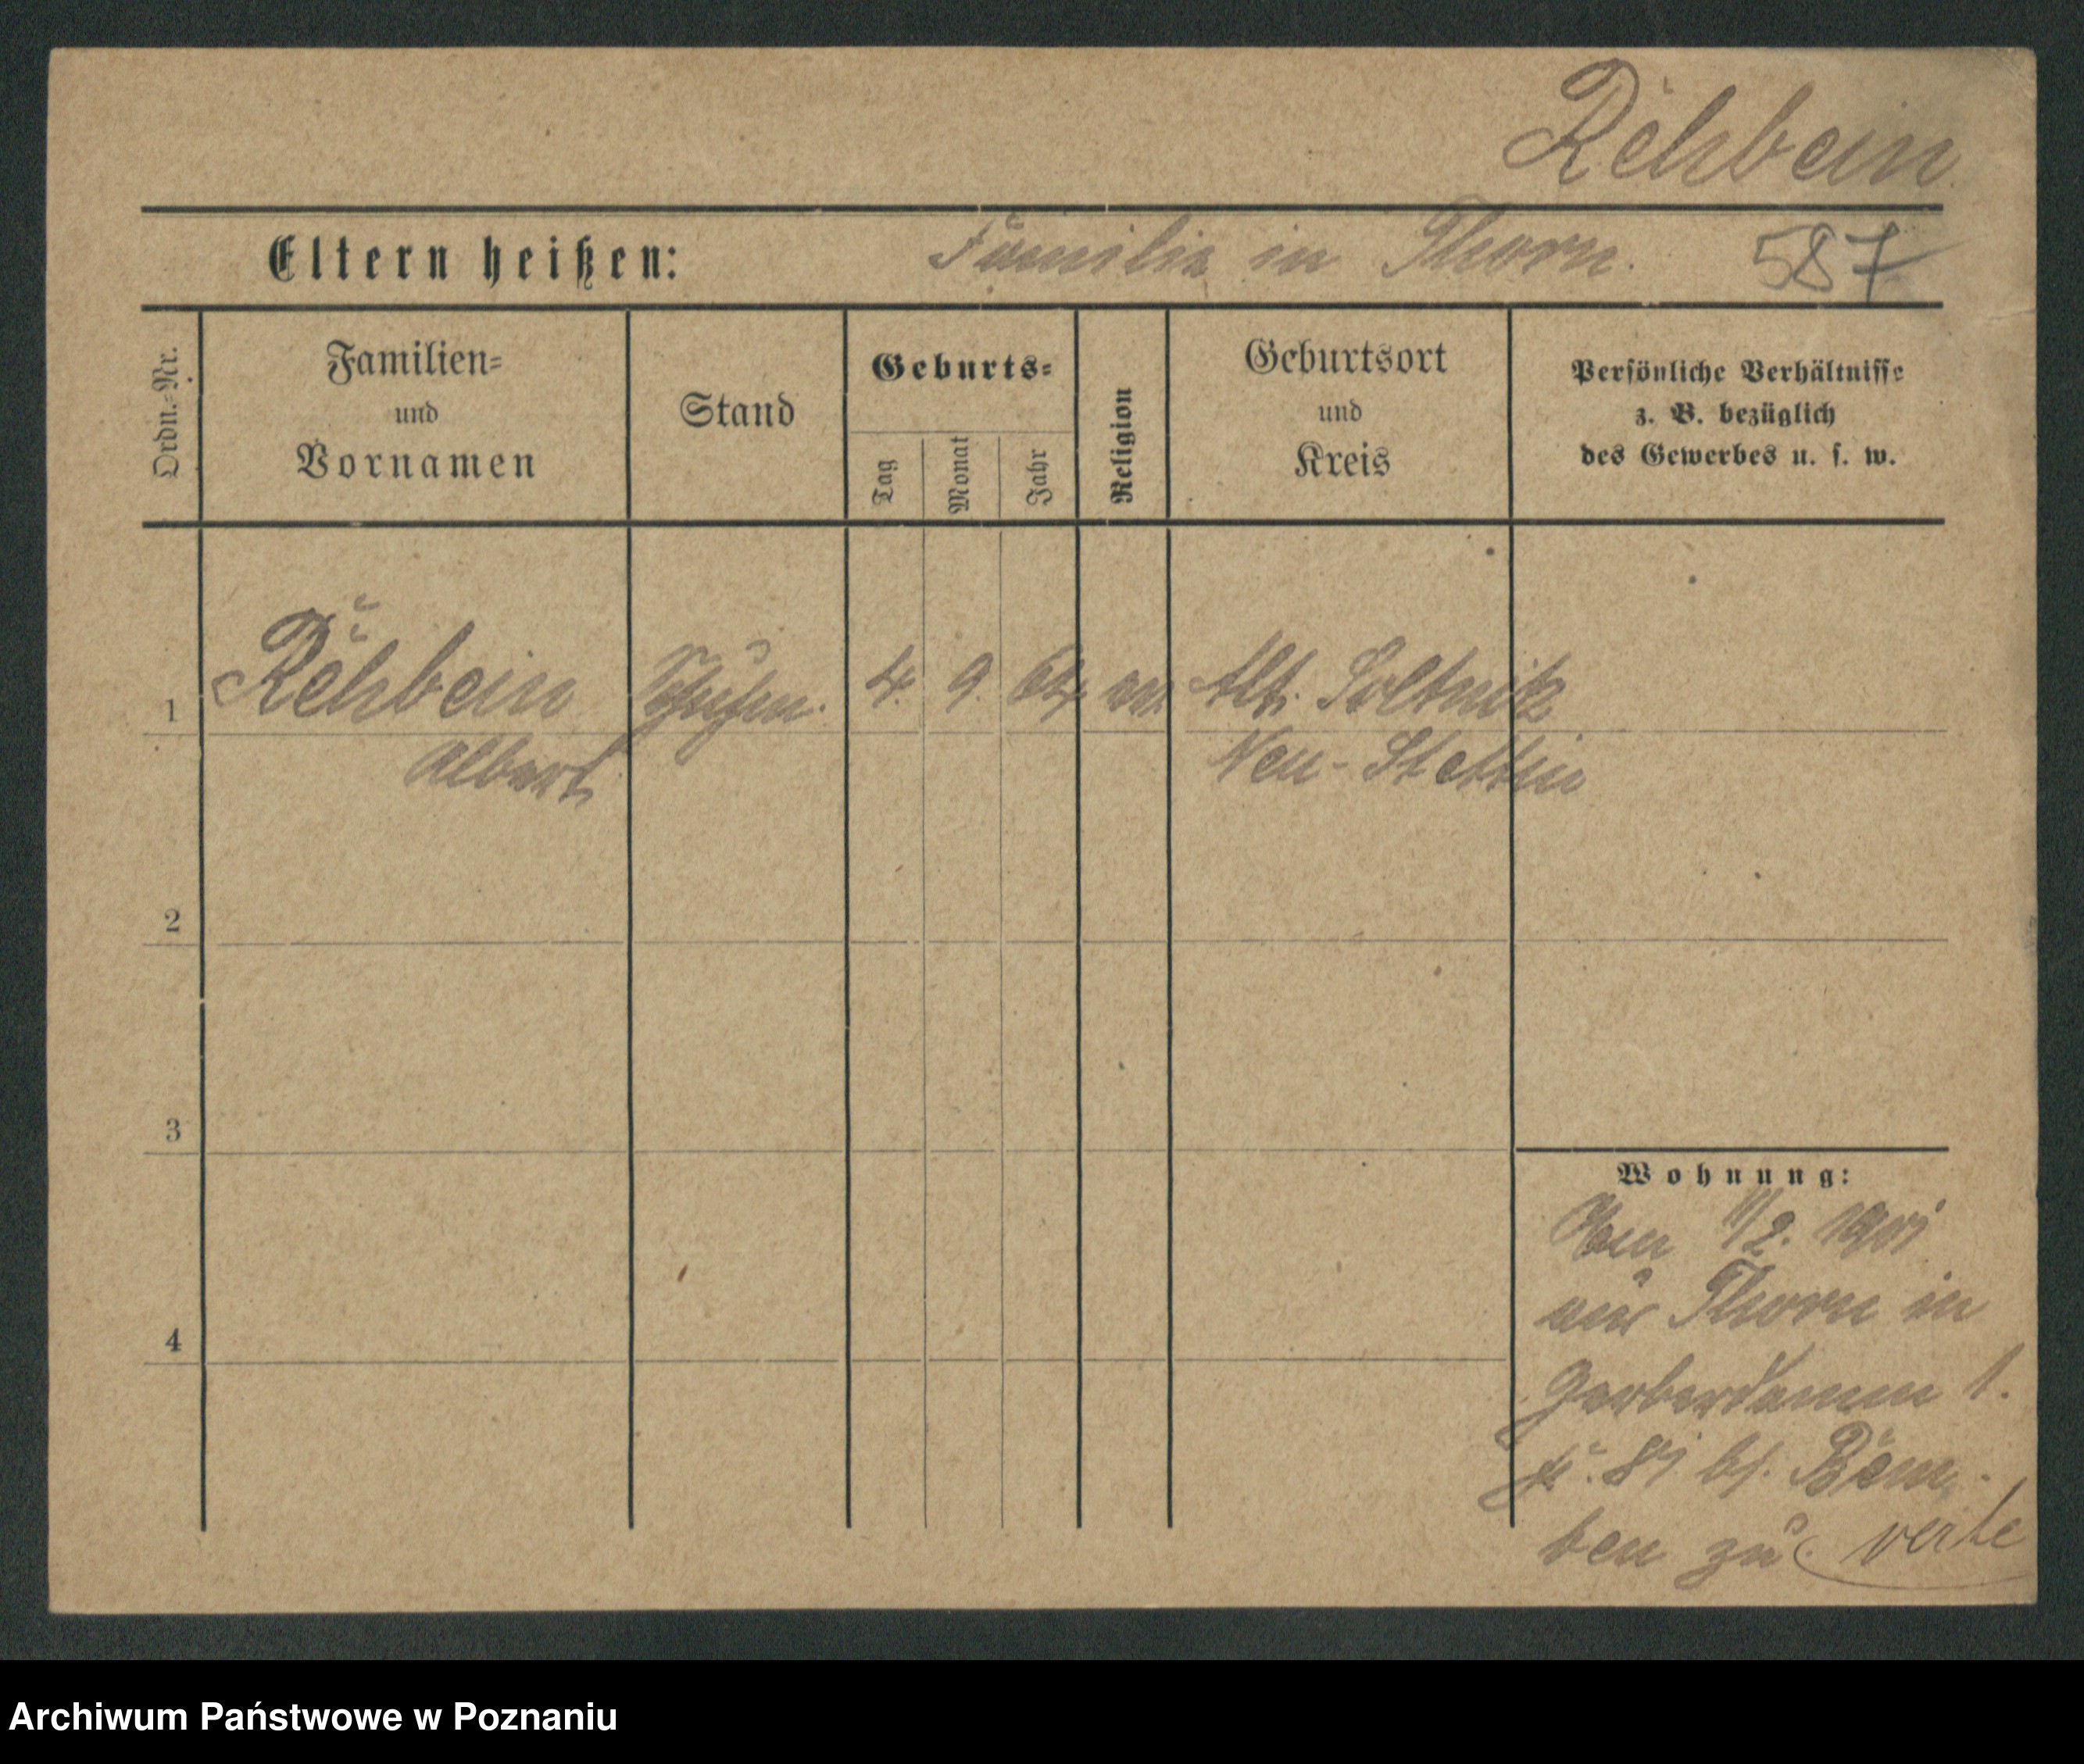 Rehbein
Eltern heißen: Familie in Thorn. 587
Ordn.-Nr.
Familien-
und
Vornamen
Stand
Geburts-
Tag
Monat
Jahr
Religion
Geburtsort
und
Kreis
Persönliche Verhältnisse
z. B. bezüglich
des Gewerbes u. s. w.
1 Rehbein 4. 9. 64 ev. Alt. Soltnitz
Albert Neu-Stettin
2
3
4
Wohnung:
1901
aus Thorn in
Gerberdamm 1.
ben zu verte
Archiwum Państwowe w Poznaniu